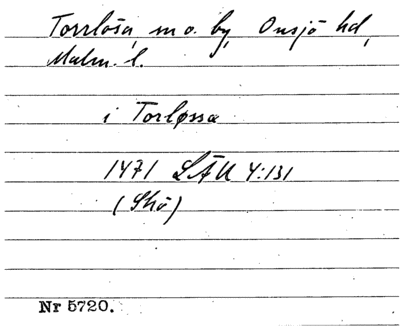 Torrlösa, sn o. by, Onsjö hd,
Malm. l.
i Torløssa
1471 SÄU 4:131
(Skö)
Nr 5720.